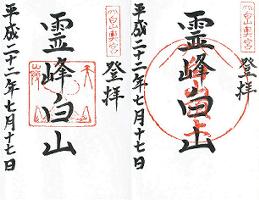 登拝
霊峰白山
平成二十二年七月十七日
白山奥宮
登拝
霊峰白山
平成二十二年七月十七日